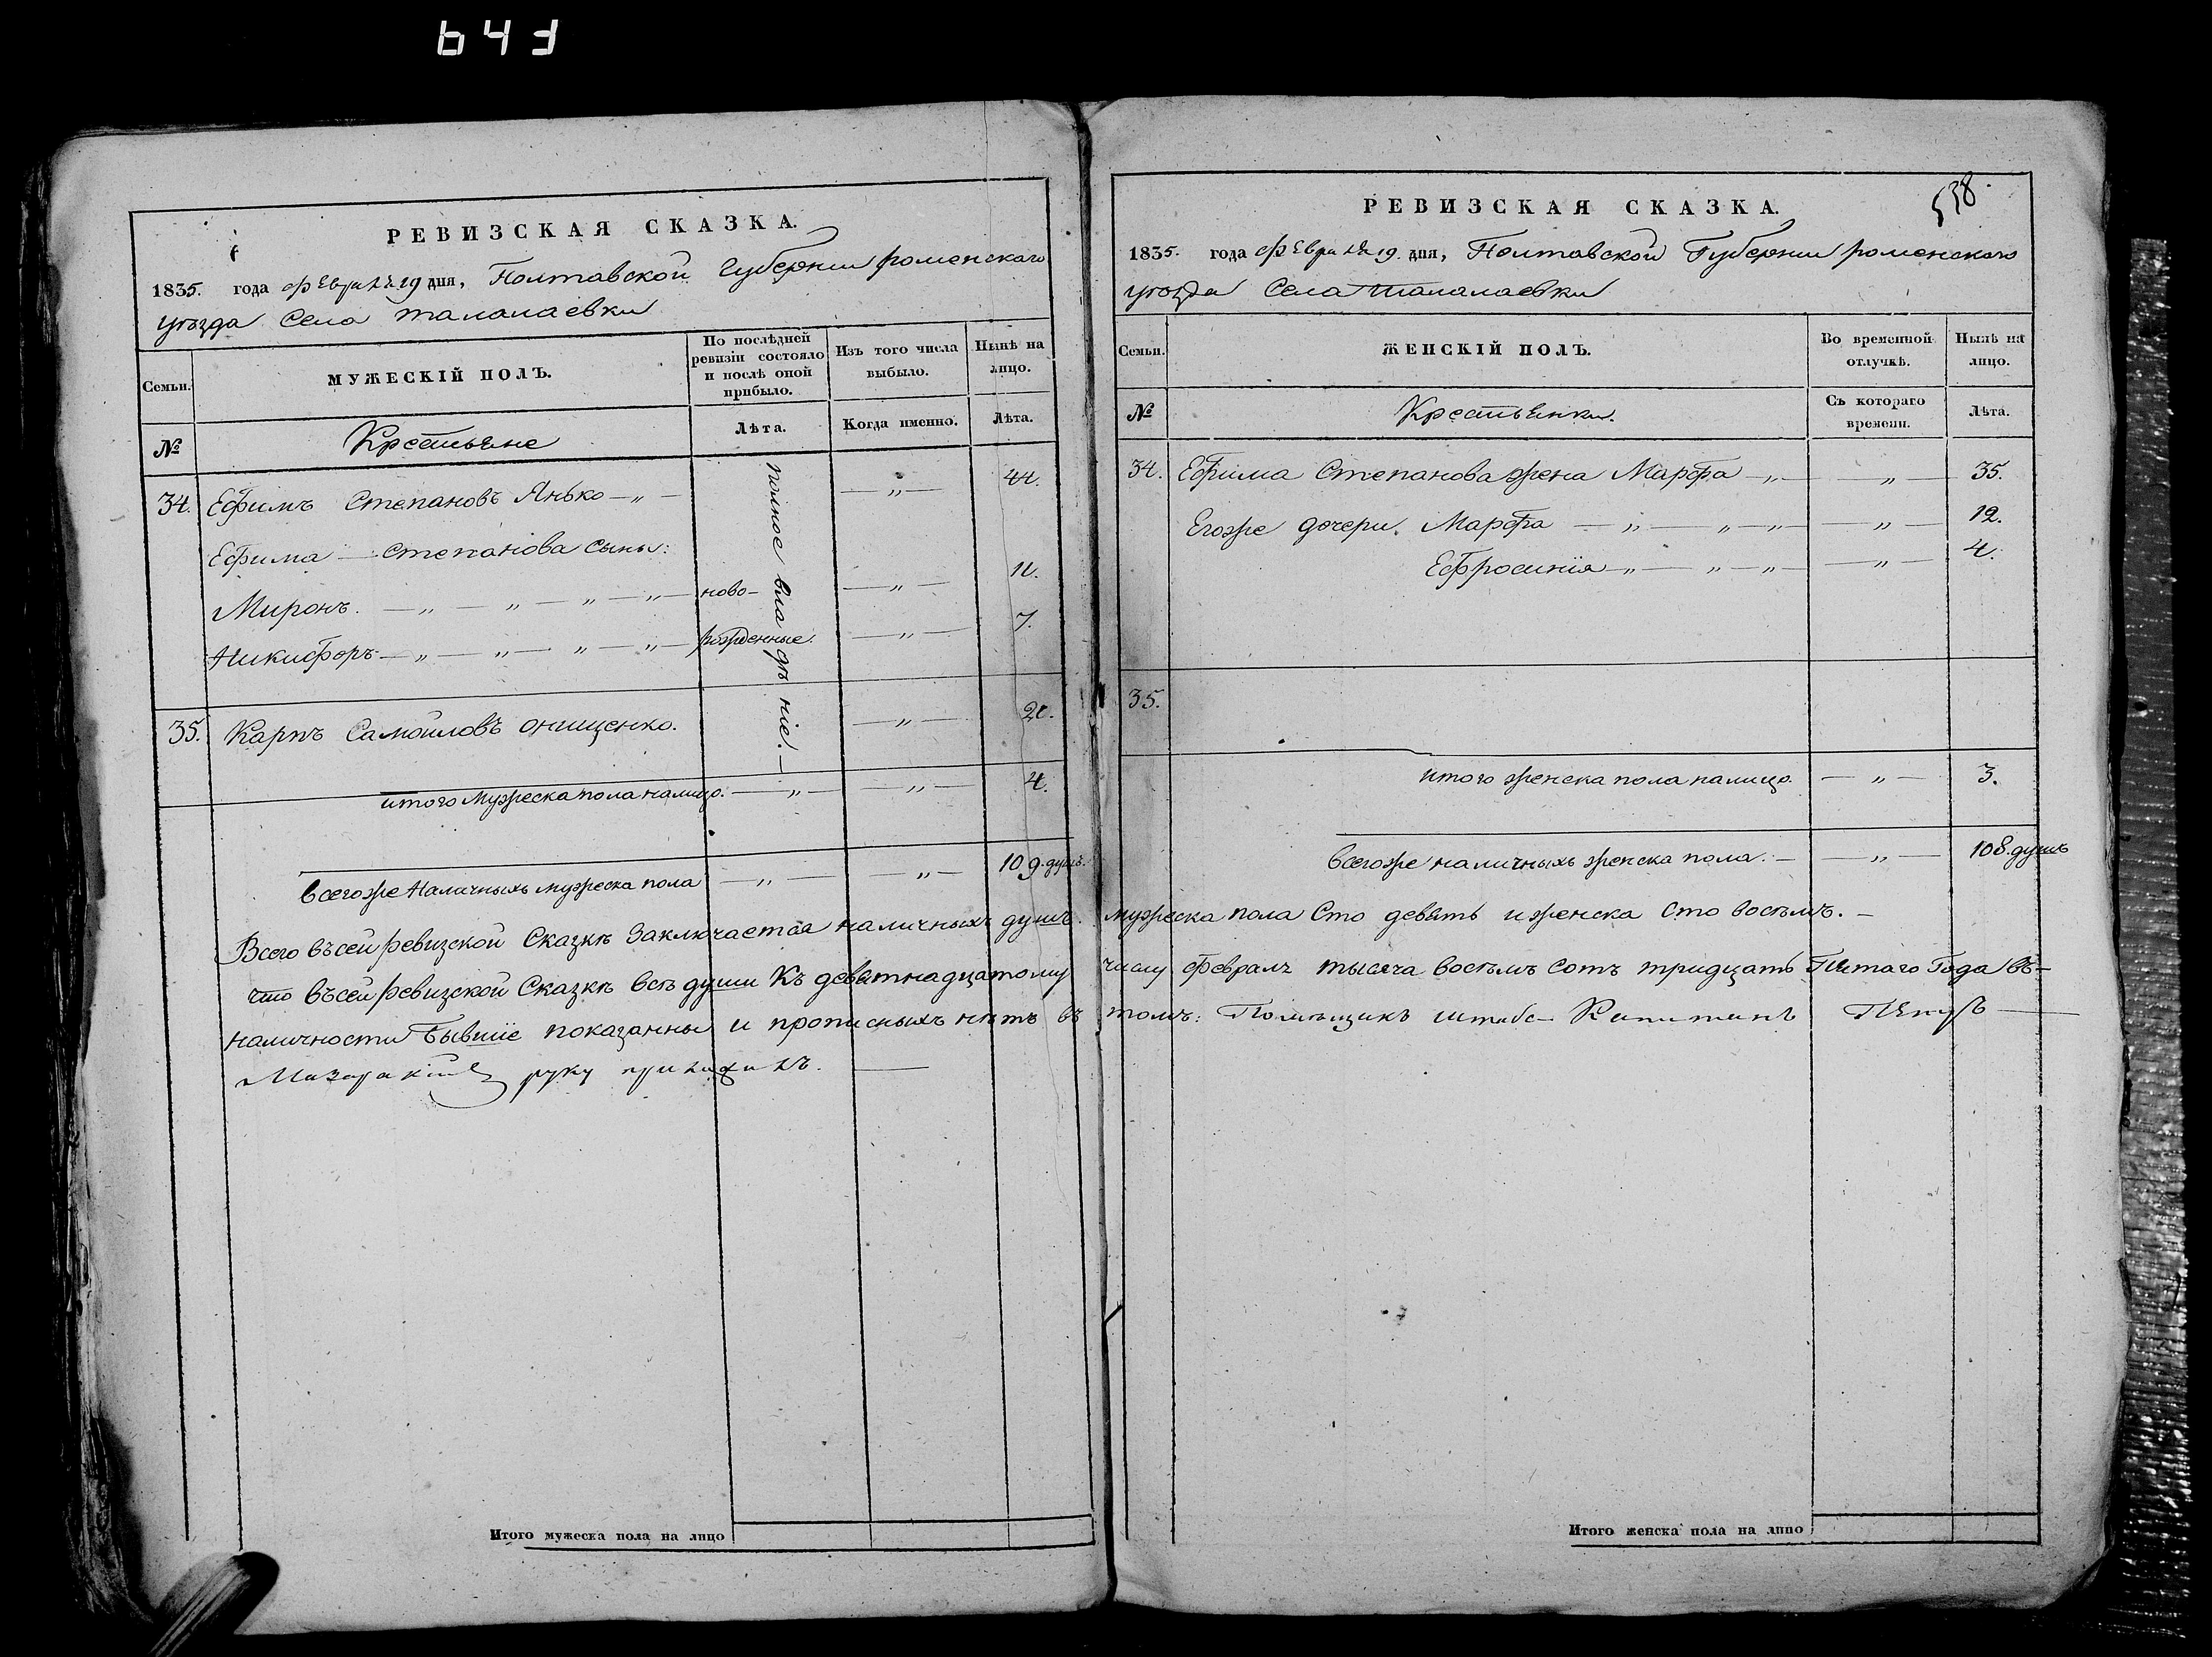 643
РЕВИЗСКАЯ СКАЗКА.
1835. года Февраля 19 дня, Полтавской Губернии роменскаго
уѣзда Села талалаевки
Семьи.
МУЖЕСКІЙ ПОЛЪ.
По послѣдней ревизіи состояло и послѣ оной прибыло.
Изъ того числа выбыло.
Нынѣ на лицо.
№
Крестьяне
Лѣта.
Когда именно.
Лѣта.
полное владѣніе. —
34. Ефимъ Степановъ Янько —„— —„— 44.
Ефима — Степанова сыны:
Миронъ. —„—„—„—„— ново- —„— 11.
Никифоръ —„—„—„—„— рожденные. —„— 7.
35. Карпъ Самойловъ онищенко. —„— 20.
итого Мужеска пола налицо. —„— —„— 4.
всегоже Наличныхъ мужеска пола —„— —„— 109. душъ.
Всего въсей ревизской Сказкѣ Заключается наличныхъ душъ.
что въсей ревизской Сказкѣ всѣ души Къ девятнадцатому
наличности Бывшіе показанны и прописныхъ нѣтъ въ
руку приложилъ. —
538.
РЕВИЗСКАЯ СКАЗКА.
1835. года Февраля 19. дня, Полтавской Губернии роменскаго
уѣзда Села талалаевки
Семьи.
ЖЕНСКІЙ ПОЛЪ.
Во временной отлучкѣ.
Нынѣ на лицо.
№
Крестьянки.
Съ котораго времени.
Лѣта.
34. Ефима Степанова жена Марфа —„— —„— 35.
Егоже дочери. Марфа —„—„—„— —„— 12.
Ефросинія —„—„—„— —„— 4.
35.
итого женска пола налицо. —„— 3.
всегоже наличныхъ женска пола. — —„— 108. душъ
мужеска пола Сто девять и женска сто восѣмъ. —
числу февраля тысяча восѣмъ сотъ тридцать Пятаго Года въ-
томъ: Помѣщикъ штабс- Капитанъ
Итого мужеска пола на лицо
Итого женска пола на лицо